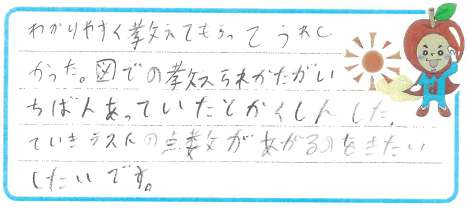 わかりやすく教えてもらってうれし
かった。図での教えられかたがい
ちばんあっていたとかくしんした。
ていきテストの点数があがるのをきたい
したいです。